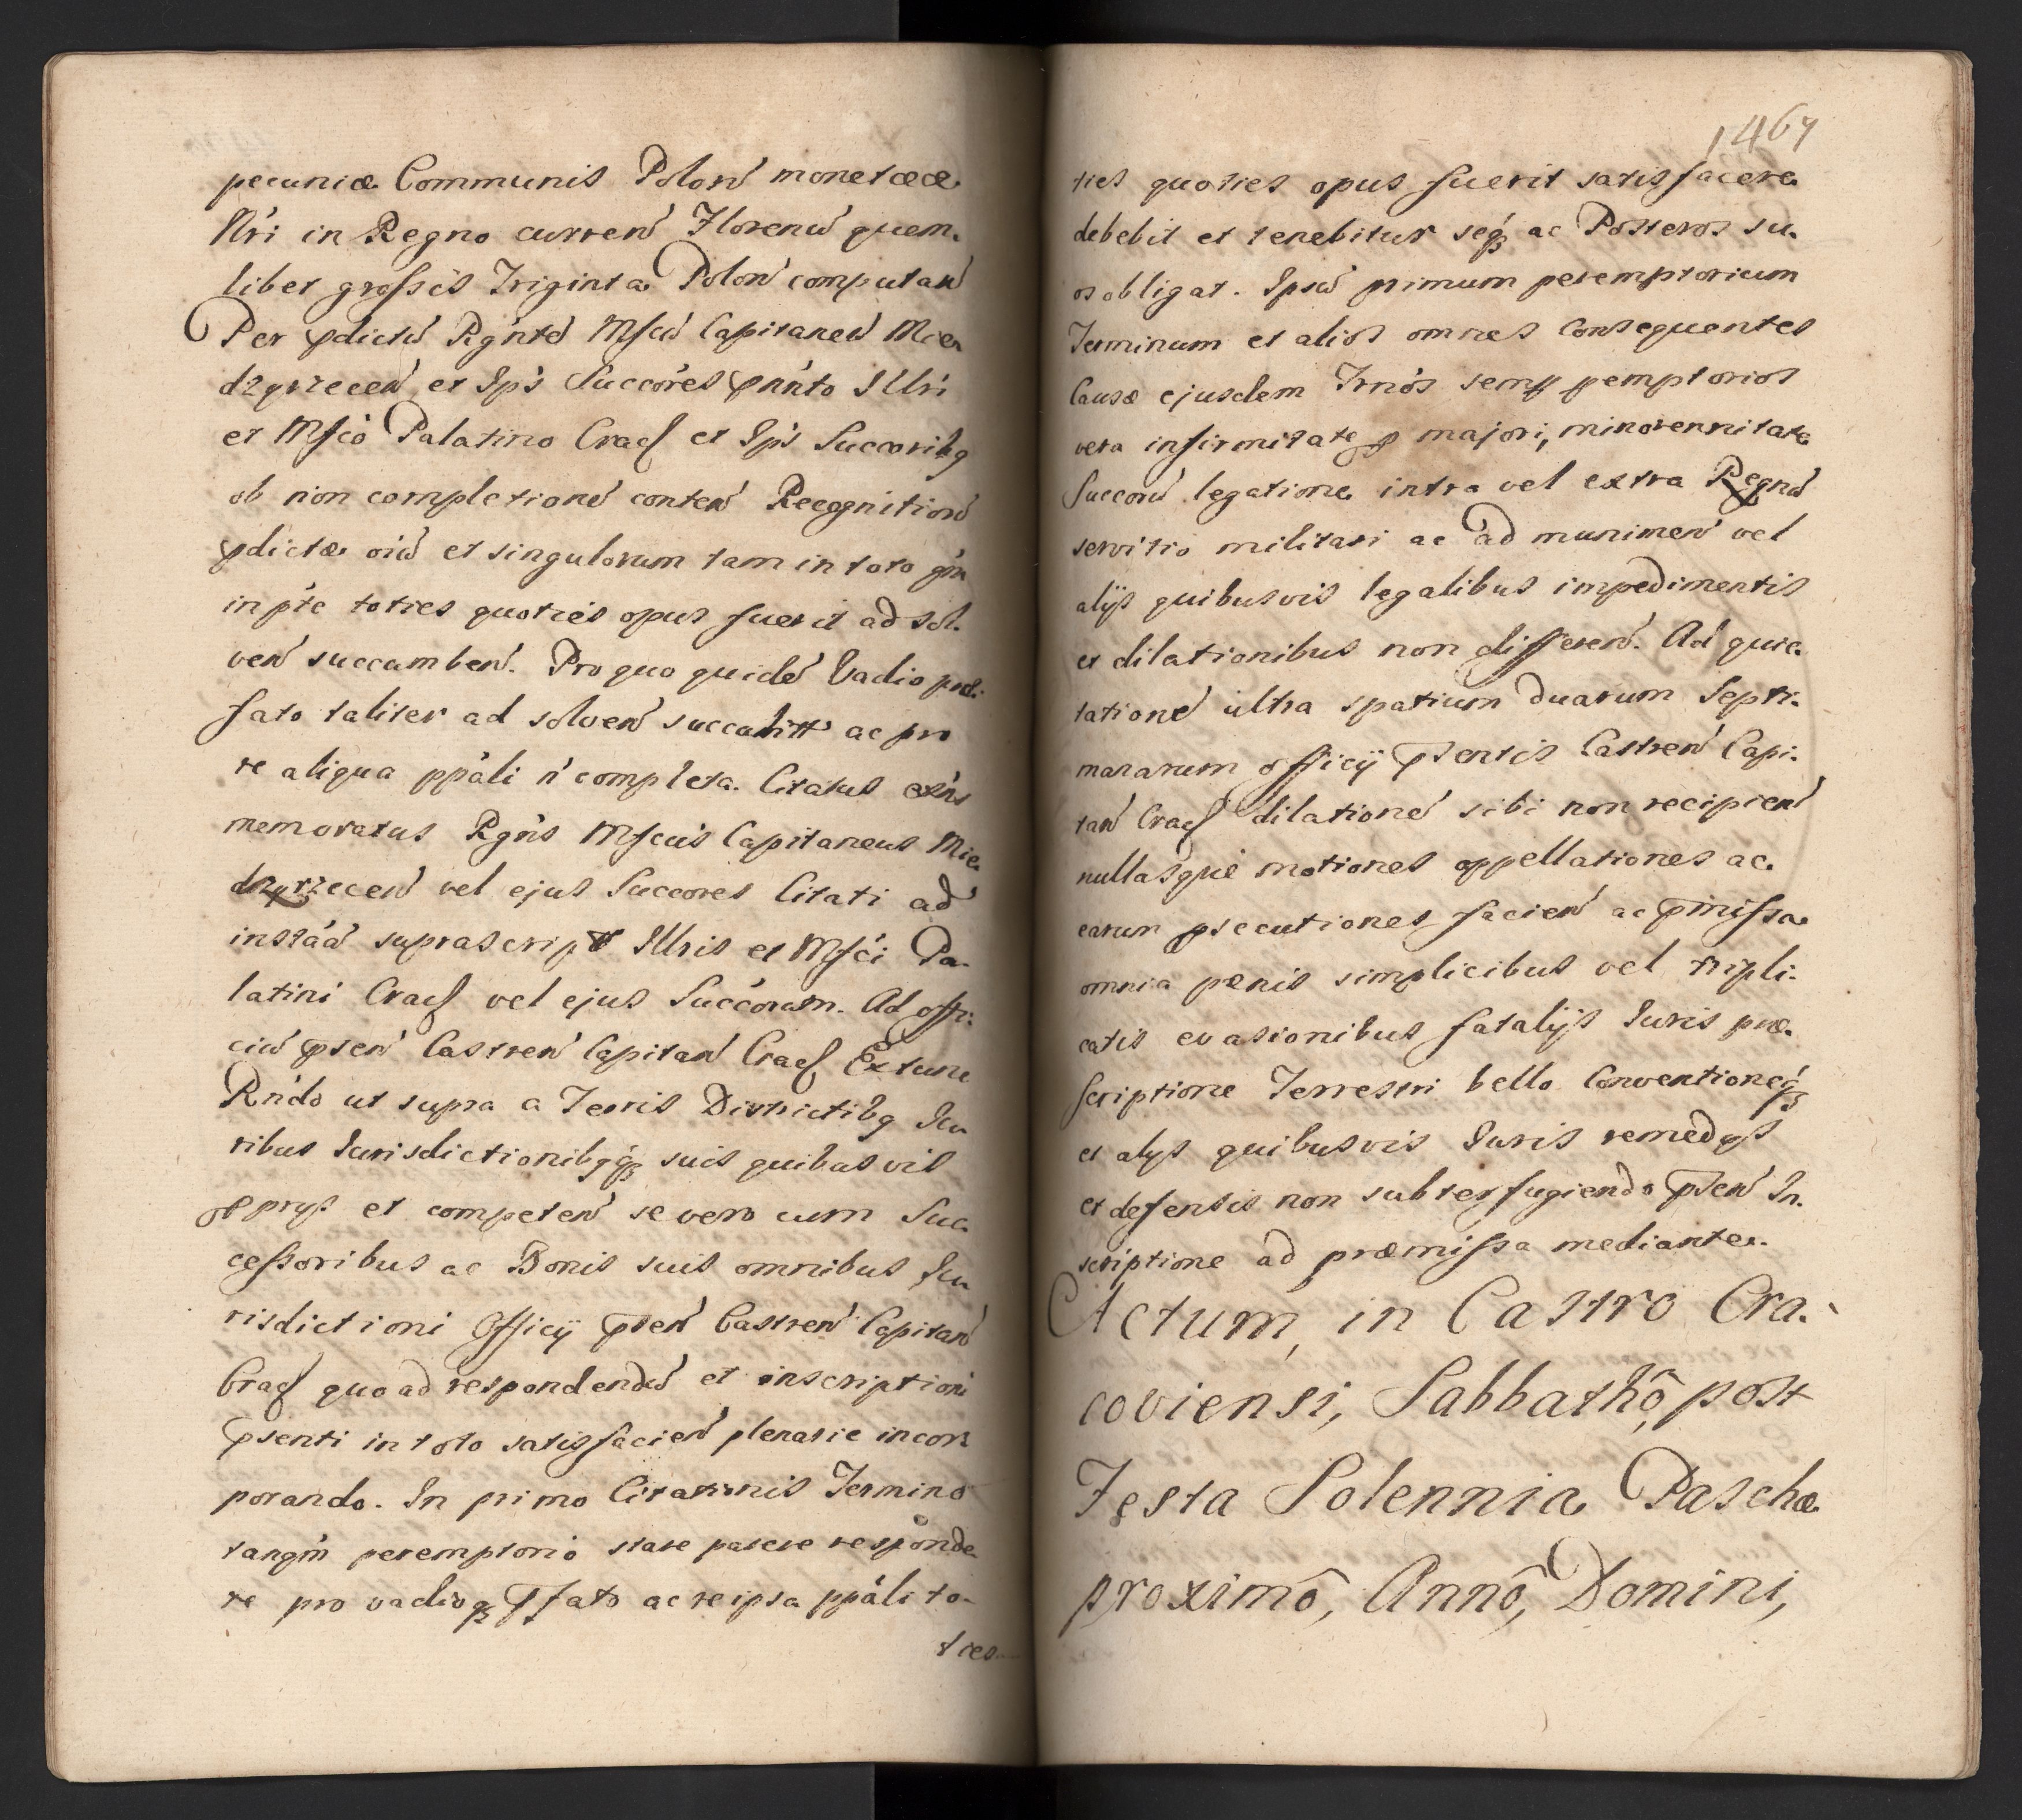 pecuniæ Communis Polon̄ monetææ
Nr̄i in Regno curren̄ Florenū quem-
libet grossis Triginta Polon̄ computan̄
Per p̄dictū Rgn̄tē Mfcū Capitaneū Mie
dzyrzecen̄ et Ip̄s Succōres p̄nn̄to Illr̄i
et Mfcō Palatino Crac̄ et Ip̄s Succoribg
ob non completionē conten̄ Recognition̄
p̄dictæ oiū et singulorum tam in toto q̄m
in p̄te toties quoties opus fuerit ad sol-
ven̄ succumben̄. Pro quo quidē Vadio præ-
fato taliter ad solven̄ succubitt̄ ac pro
re aliqua pp̄ali n̄ completa. Citatus exn̄s
memoratus Rgn̄s Mfcūs Capitaneus Mie-
dzyrzecen̄ vel ejus Succores Citati ad
instāā suprascript̄ Illris et Mfc̄i Pa-
latini Crac̄ vel ejus Succōrum. Ad offi-
ciū p̄sen̄ Castren̄ Capitan̄ Crac̄ Extunc
Rn̄do ut supra a Terris Districtibg Ju
ribus Jurisdictionibgq̄ suis quibusvis
pprijs et competen̄ se vero cum Suc-
cessoribus ac Bonis suis omnibus Ju
risdictioni Officij p̄sen̄ Castren̄ Capitan̄
Crac̄ quo ad respondendū et inscriptioni
p̄senti in toto satisfacien̄ plenarie incor
porando. In primo Citationis Termino
tanq̄m peremptorio stare parere responde
re pro vadioq̄ p̄fato ac re ipsa pp̄ali to-
ties
1467
ties quoties opus fuerit satisfacere
debebit et tenebitur seq̄ ac Posteros su-
os obligat. Ipsū primum peremptorium
Terminum et alios omnes Consequentes
Causæ ejusdem Trn̄os semp pemptorios
vera infirmitate p majori, minorennitate
Succorū legatione intra vel extra Regnū
servitio militari ac ad munimen̄ vel
alijs quibusvis legalibus impedimentis
et dilationibus non differen̄. Ad quie-
tationē ultra spatium duarum Septi-
manarum officij p̄sentis Castren̄ Capi-
tan̄ Crac̄ dilationē sibi non recipien̄
nullasque motiones appellationes ac
earum psecutiones facien̄ ac p̄missa
omnia pœnis simplicibus vel tripli-
catis evasionibus fatalijs Juris præ-
scriptione Terrestri bello Conventioneq̄
et alijs quibusvis Juris remedijs
et defensis non subterfugiendo p̄sen̄ In-
scriptione ad præmissa mediante.
Actum, in Castro Cra-
coviensi, Sabbathô post
Festa Solennia Paschæ
proximô, Annô, Domini,